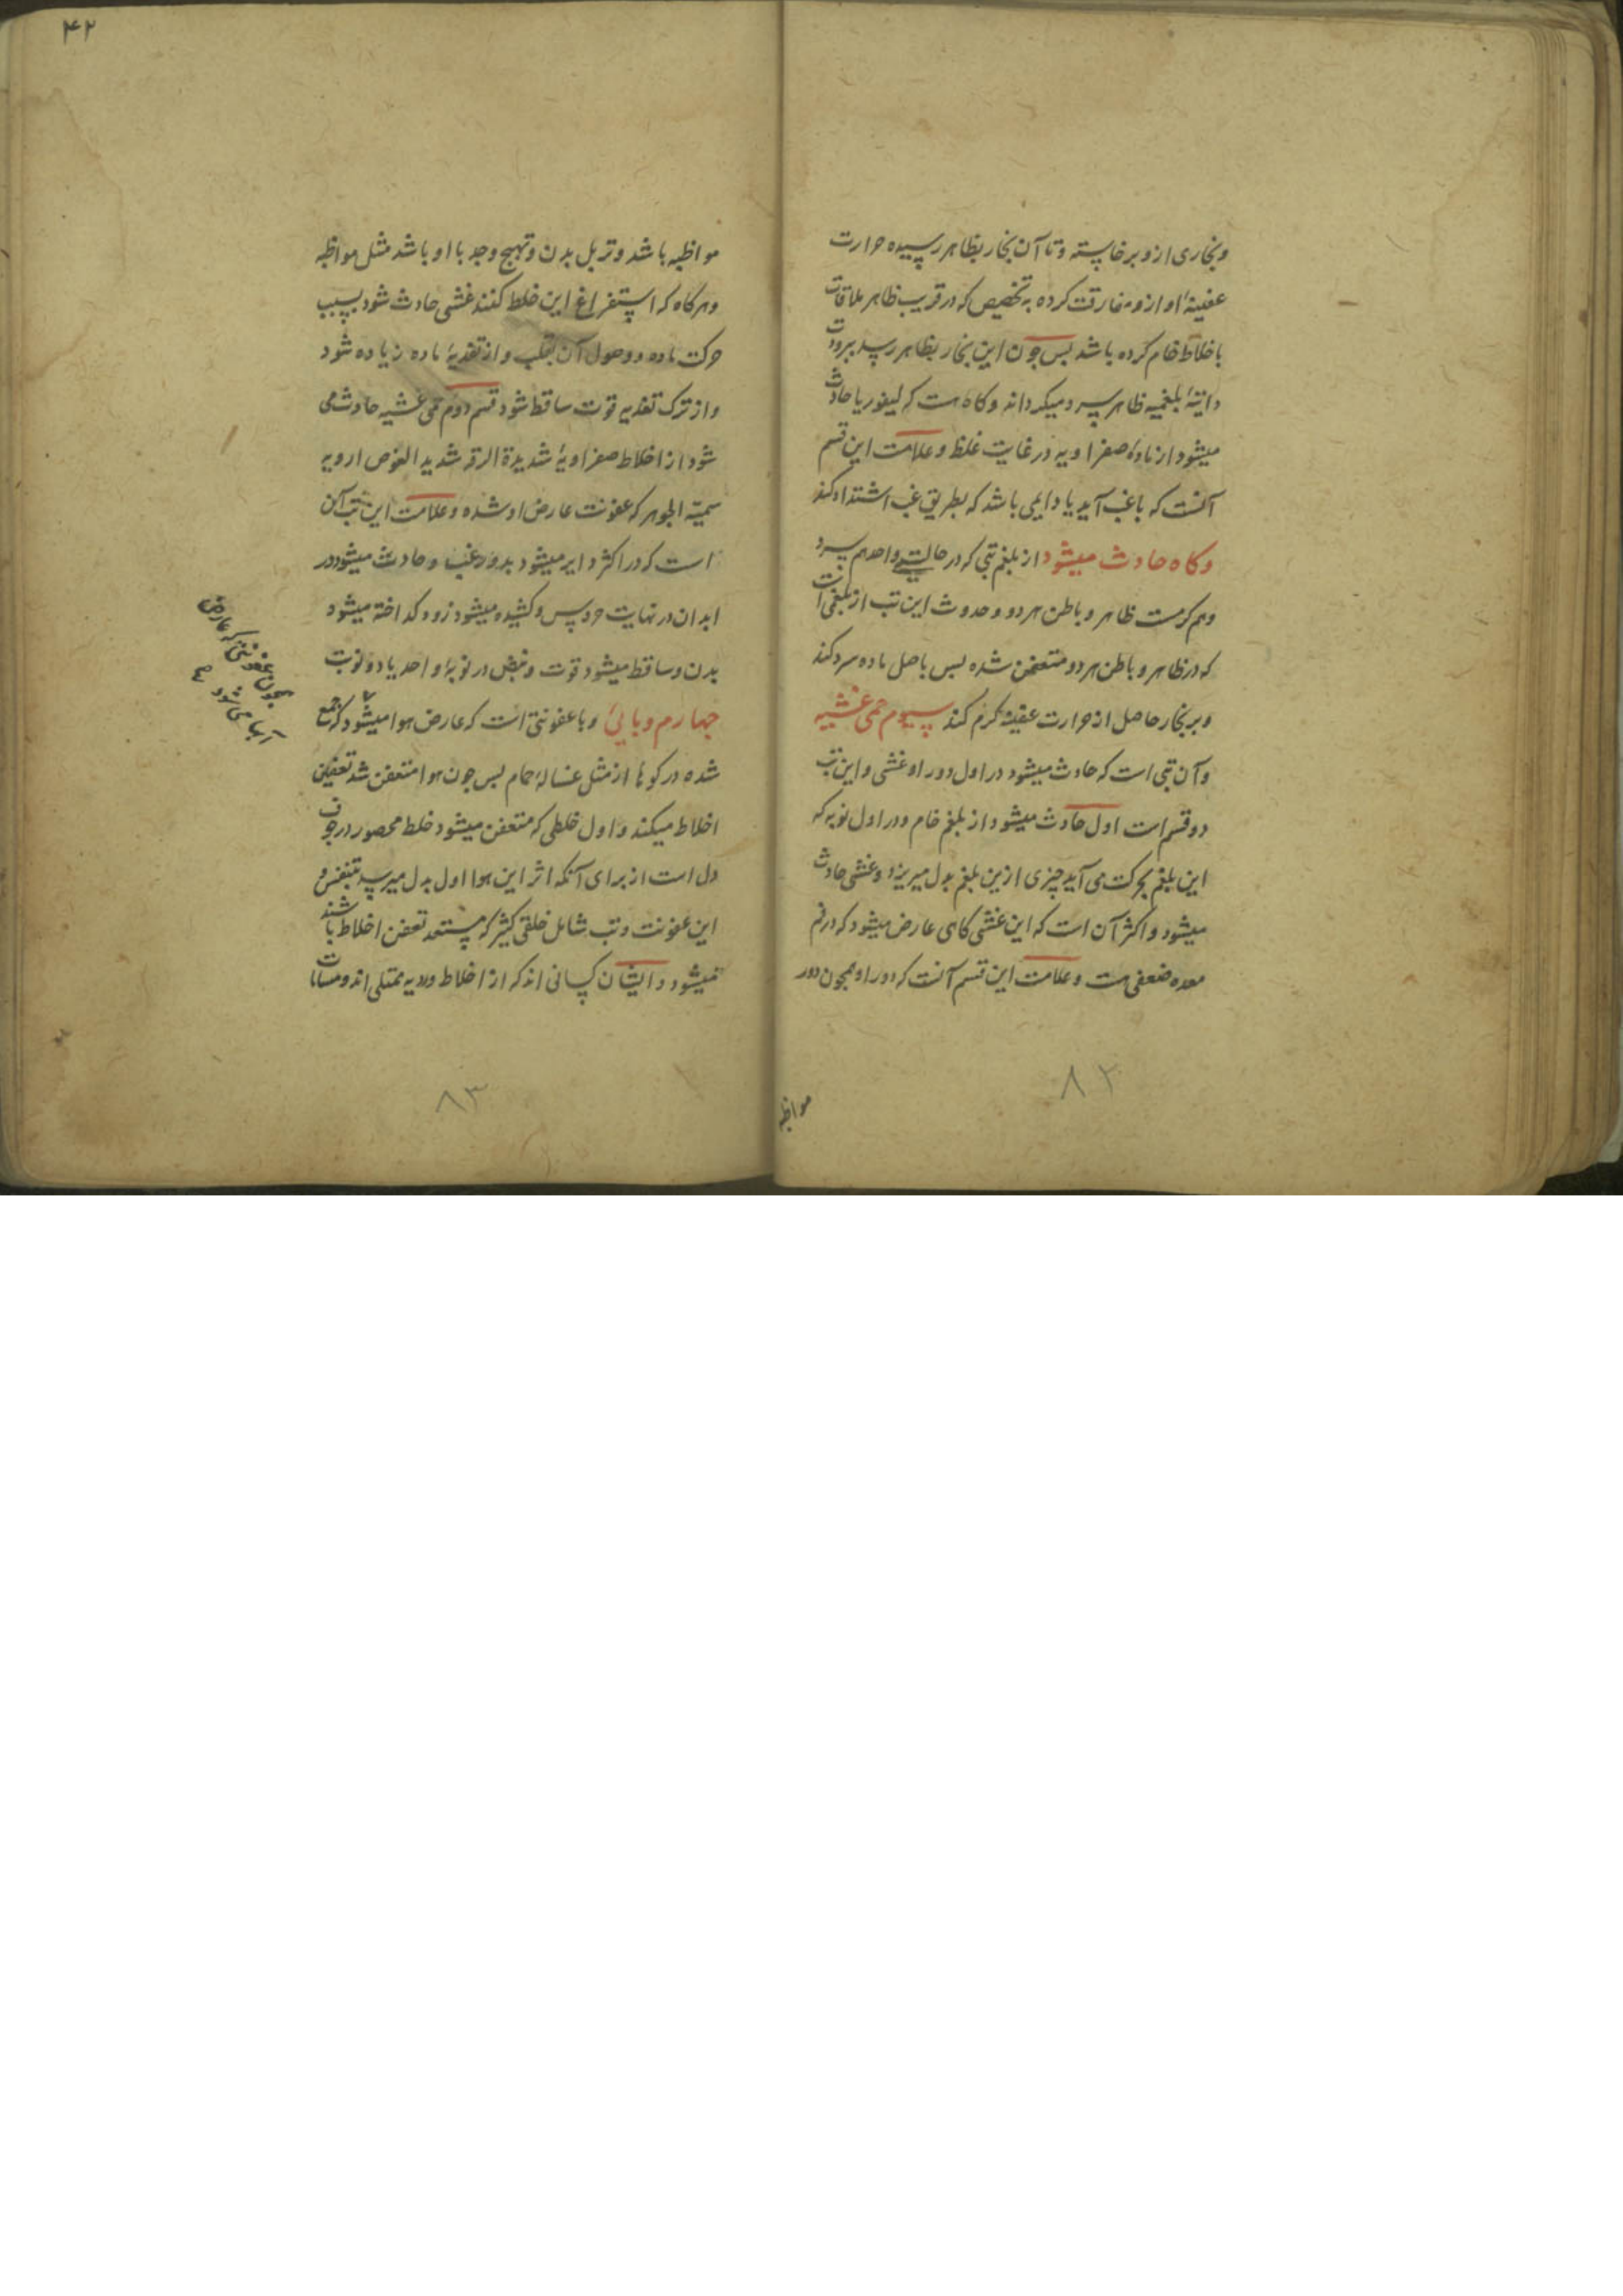 وبخاری ازو برخاسته و تا آن بخار بظاهر رسیده حرارت
عفنیهٔ او ازو مفارقت کرده به تخصیص که در قریب ظاهر ملاقات
باخلاط خام کرده باشد بس جون این بخار بظاهر رسد ببرودت
ذاتیهٔ بلغمیه ظاهر سرد میکرداند و کاه هست که لیفوریا حادث
میشود از مادهٔ صفراویه در غایت غلظ و علامت این قسم
آنست که باغب آید یا دایمی باشد که بطریق غب اشتداد کند
وکاه حادث میشود از بلغم تبی که در حالتی واحد هم سرد
وهم کرمست ظاهر و باطن هر دو و حدوث این تب از بلغمی است
که در ظاهر و باطن هر دو متعفن شده بس باصل ماده سرد کند
وبر بخار حاصل از حرارت عفنیه کرم کند سیوم حمی غشییه
وآن تبی است که حادث میشود در اول دور او غشی و این تب
دو قسم است اول حادث میشود از بلغم خام و در اول نوبه که
این بلغم بحرکت می آید چیزی ازین بلغم بدل میریزد و غشی حادث
میشود و اکثر آن است که این غشی کاهی عارض میشود که در فم
معده ضعفی هست و علامت این قسم آنست که دور او همجون دور
مواظبه
۸۲
۴۲
مواظبه باشد و تربل بدن و تهیج وجه با او باشد مثل مواظبه
وهر کاه که استفراغ این خلط کنند غشی حادث شود بسبب
حرکت ماده و وصول آن بقلب و از تغذیهٔ ماده زیاده شود
واز ترک تغذیه قوت ساقط شود قسم دوم حمی غشییه حادث می
شود از اخلاط صفراویهٔ شدیدة الرقه شدید الغوص ردیه
سمیة الجوهر که عفونت عارض او شده و علامت این تب آن
است که در اکثر دایر میشود بدور غب و حادث میشود در
ابدان در نهایت حر و یبس و کشیده میشود زود کداخته میشود
بدن و ساقط میشود قوت و نبض در نوبهٔ واحد یا دو نوبت
جهارم وبایی وبا عفونتی است که عارض هوا میشود که جمع
شده در کوها از مثل غسالهٔ حمام بس جون هوا متعفن شد تعفین
اخلاط میکند و اول خلطی که متعفن میشود خلط محصور در جوف
دل است از برای آنکه اثر این هوا اول بدل میرسد بتنفس و
این عفونت و تب شامل خلقی کثیر که مستعد تعفن اخلاط باشند
میشود و ایشان کسانی اند که از اخلاط ردیه ممتلی اند و مسامات
همجون عفونتی که عارض
آبها می شود
۸۳